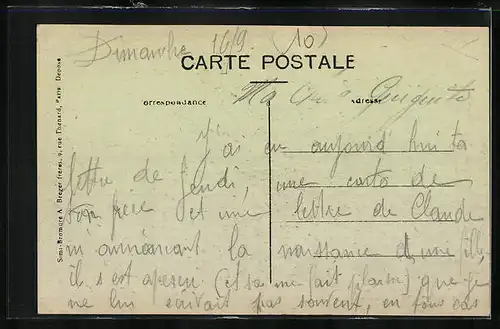 Dimanche 16/9 (10)
CARTE POSTALE
Correspondance
Adresse
Ma
J'ai eu aujourd'hui ta
lettre de Jeudi, une carte de
ton père et une lettre de Claude
m'annonçant la naissance d'une fille,
il s'est aperçu (et ça me fait plaisir) que je
ne lui écrivait pas souvent, en tous cas
Semi-Bromure A. Breger frères, 9, rue Thénard, Paris. Déposé